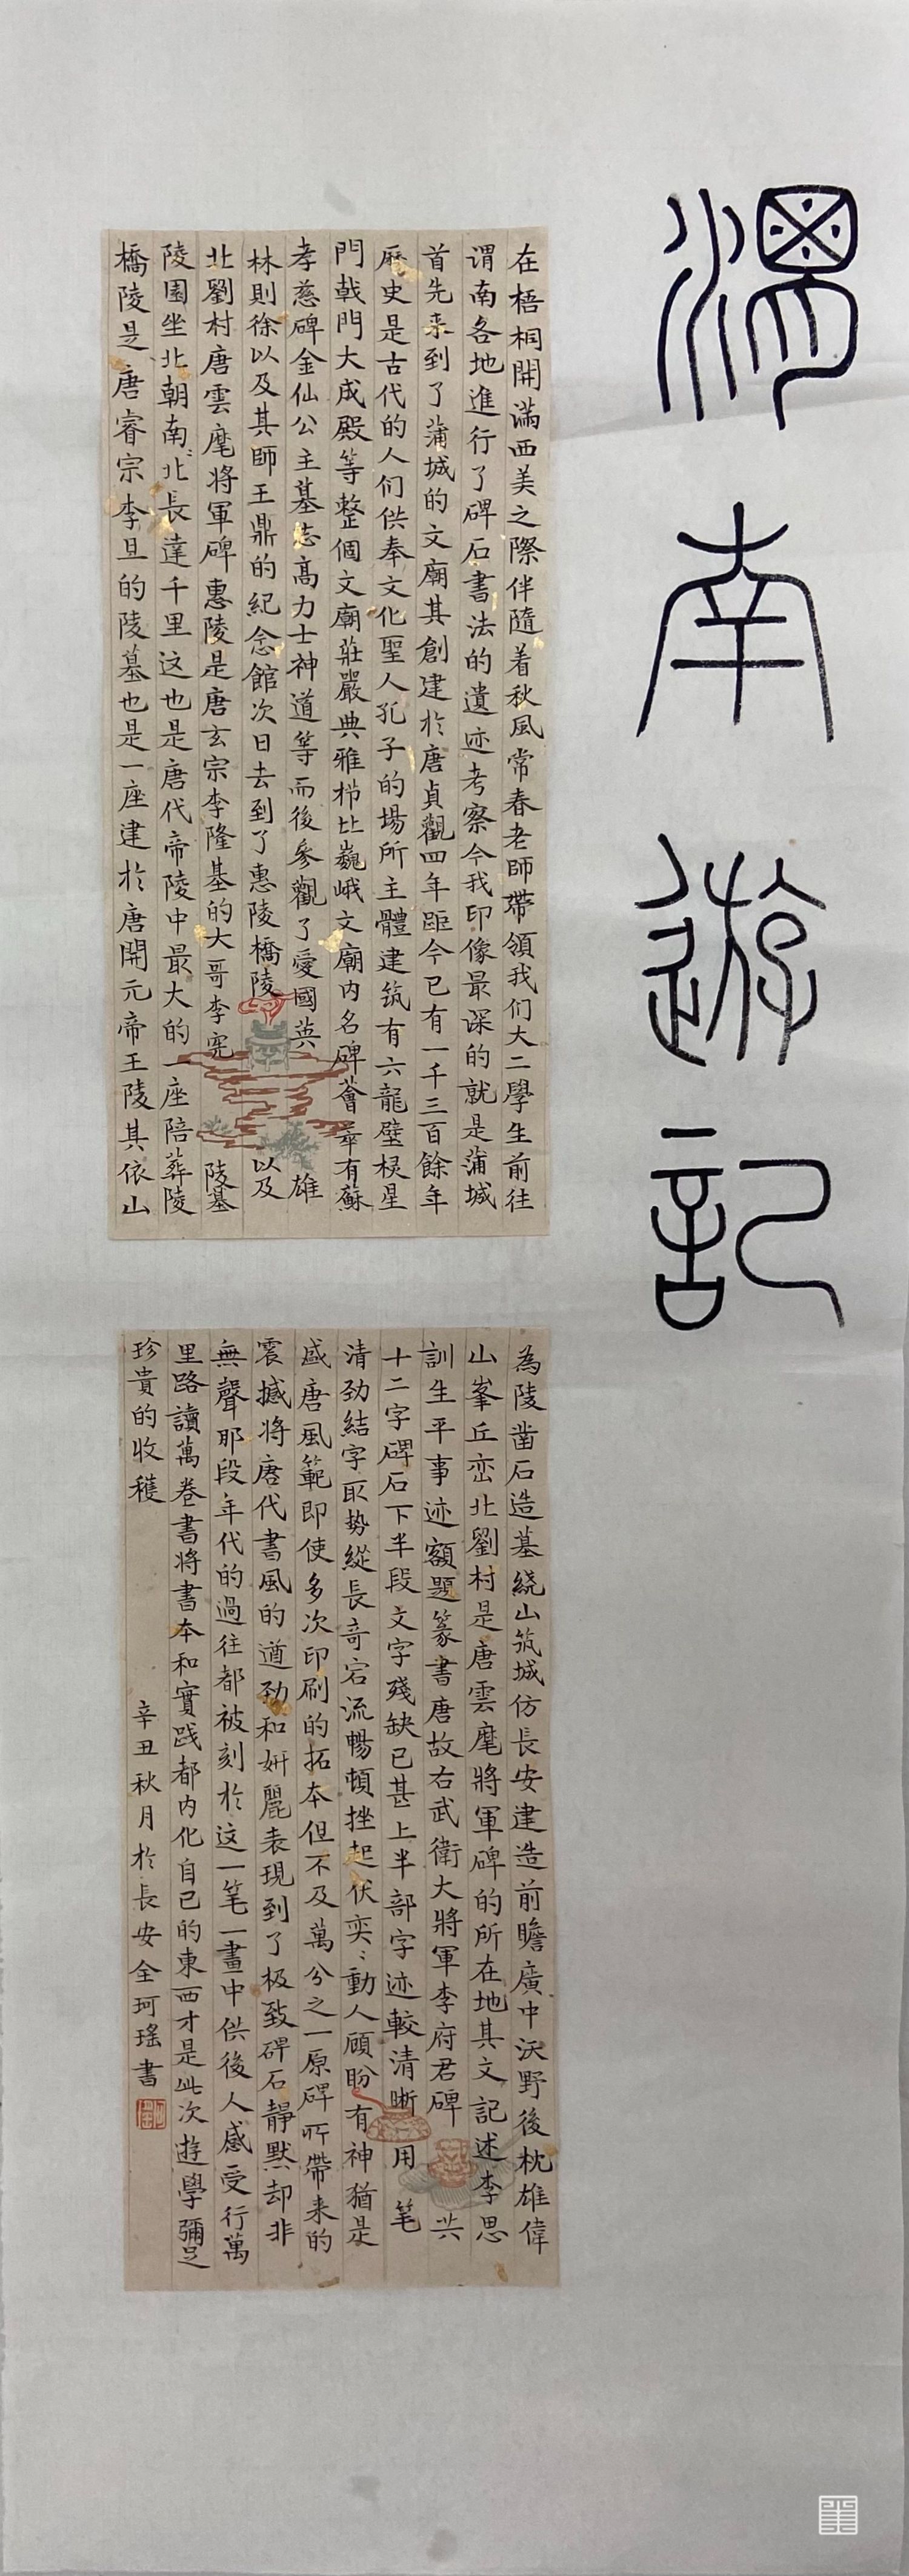 渭南遊記
在梧桐開滿西美之際伴隨着秋風常春老師帶領我们大二學生前往
谓南各地進行了碑石書法的遺迹考察令我印像最深的就是蒲城
首先来到了蒲城的文廟其創建於唐貞觀四年距今已有一千三百餘年
歷史是古代的人们供奉文化聖人孔子的場所主體建筑有六龍壁棂星
門戟門大成殿等整個文廟莊嚴典雅栉比巍峨文廟內名碑薈萃有蘇
孝慈碑金仙公主墓志高力士神道等而後參觀了愛國英雄
林則徐以及其師王鼎的紀念館次日去到了惠陵橋陵以及
北劉村唐雲麾將軍碑惠陵是唐玄宗李隆基的大哥李宪陵墓
陵園坐北朝南北長達千里这也是唐代帝陵中最大的一座陪葬陵
橋陵是唐睿宗李旦的陵墓也是一座建於唐開元帝王陵其依山
為陵凿石造墓绕山筑城仿長安建造前瞻廣中沃野後枕雄偉
山峯丘峦北劉村是唐雲麾將軍碑的所在地其文記述李思
訓生平事迹額題篆書唐故右武衛大將軍李府君碑共
十二字碑石下半段文字殘缺已甚上半部字迹較清晰用笔
清劲結字取势縱長奇宕流暢頓挫起伏奕〻動人顾盼有神猶是
盛唐風範即使多次印刷的拓本但不及萬分之一原碑所帶来的
震撼将唐代書風的遒劲和妍麗表現到了极致碑石靜默却非
無聲那段年代的過往都被刻於这一笔一畫中供後人感受行萬
里路讀萬卷書将書本和實践都內化自己的東西才是此次遊學彌足
珍貴的收穫
辛丑秋月於長安全珂瑤書